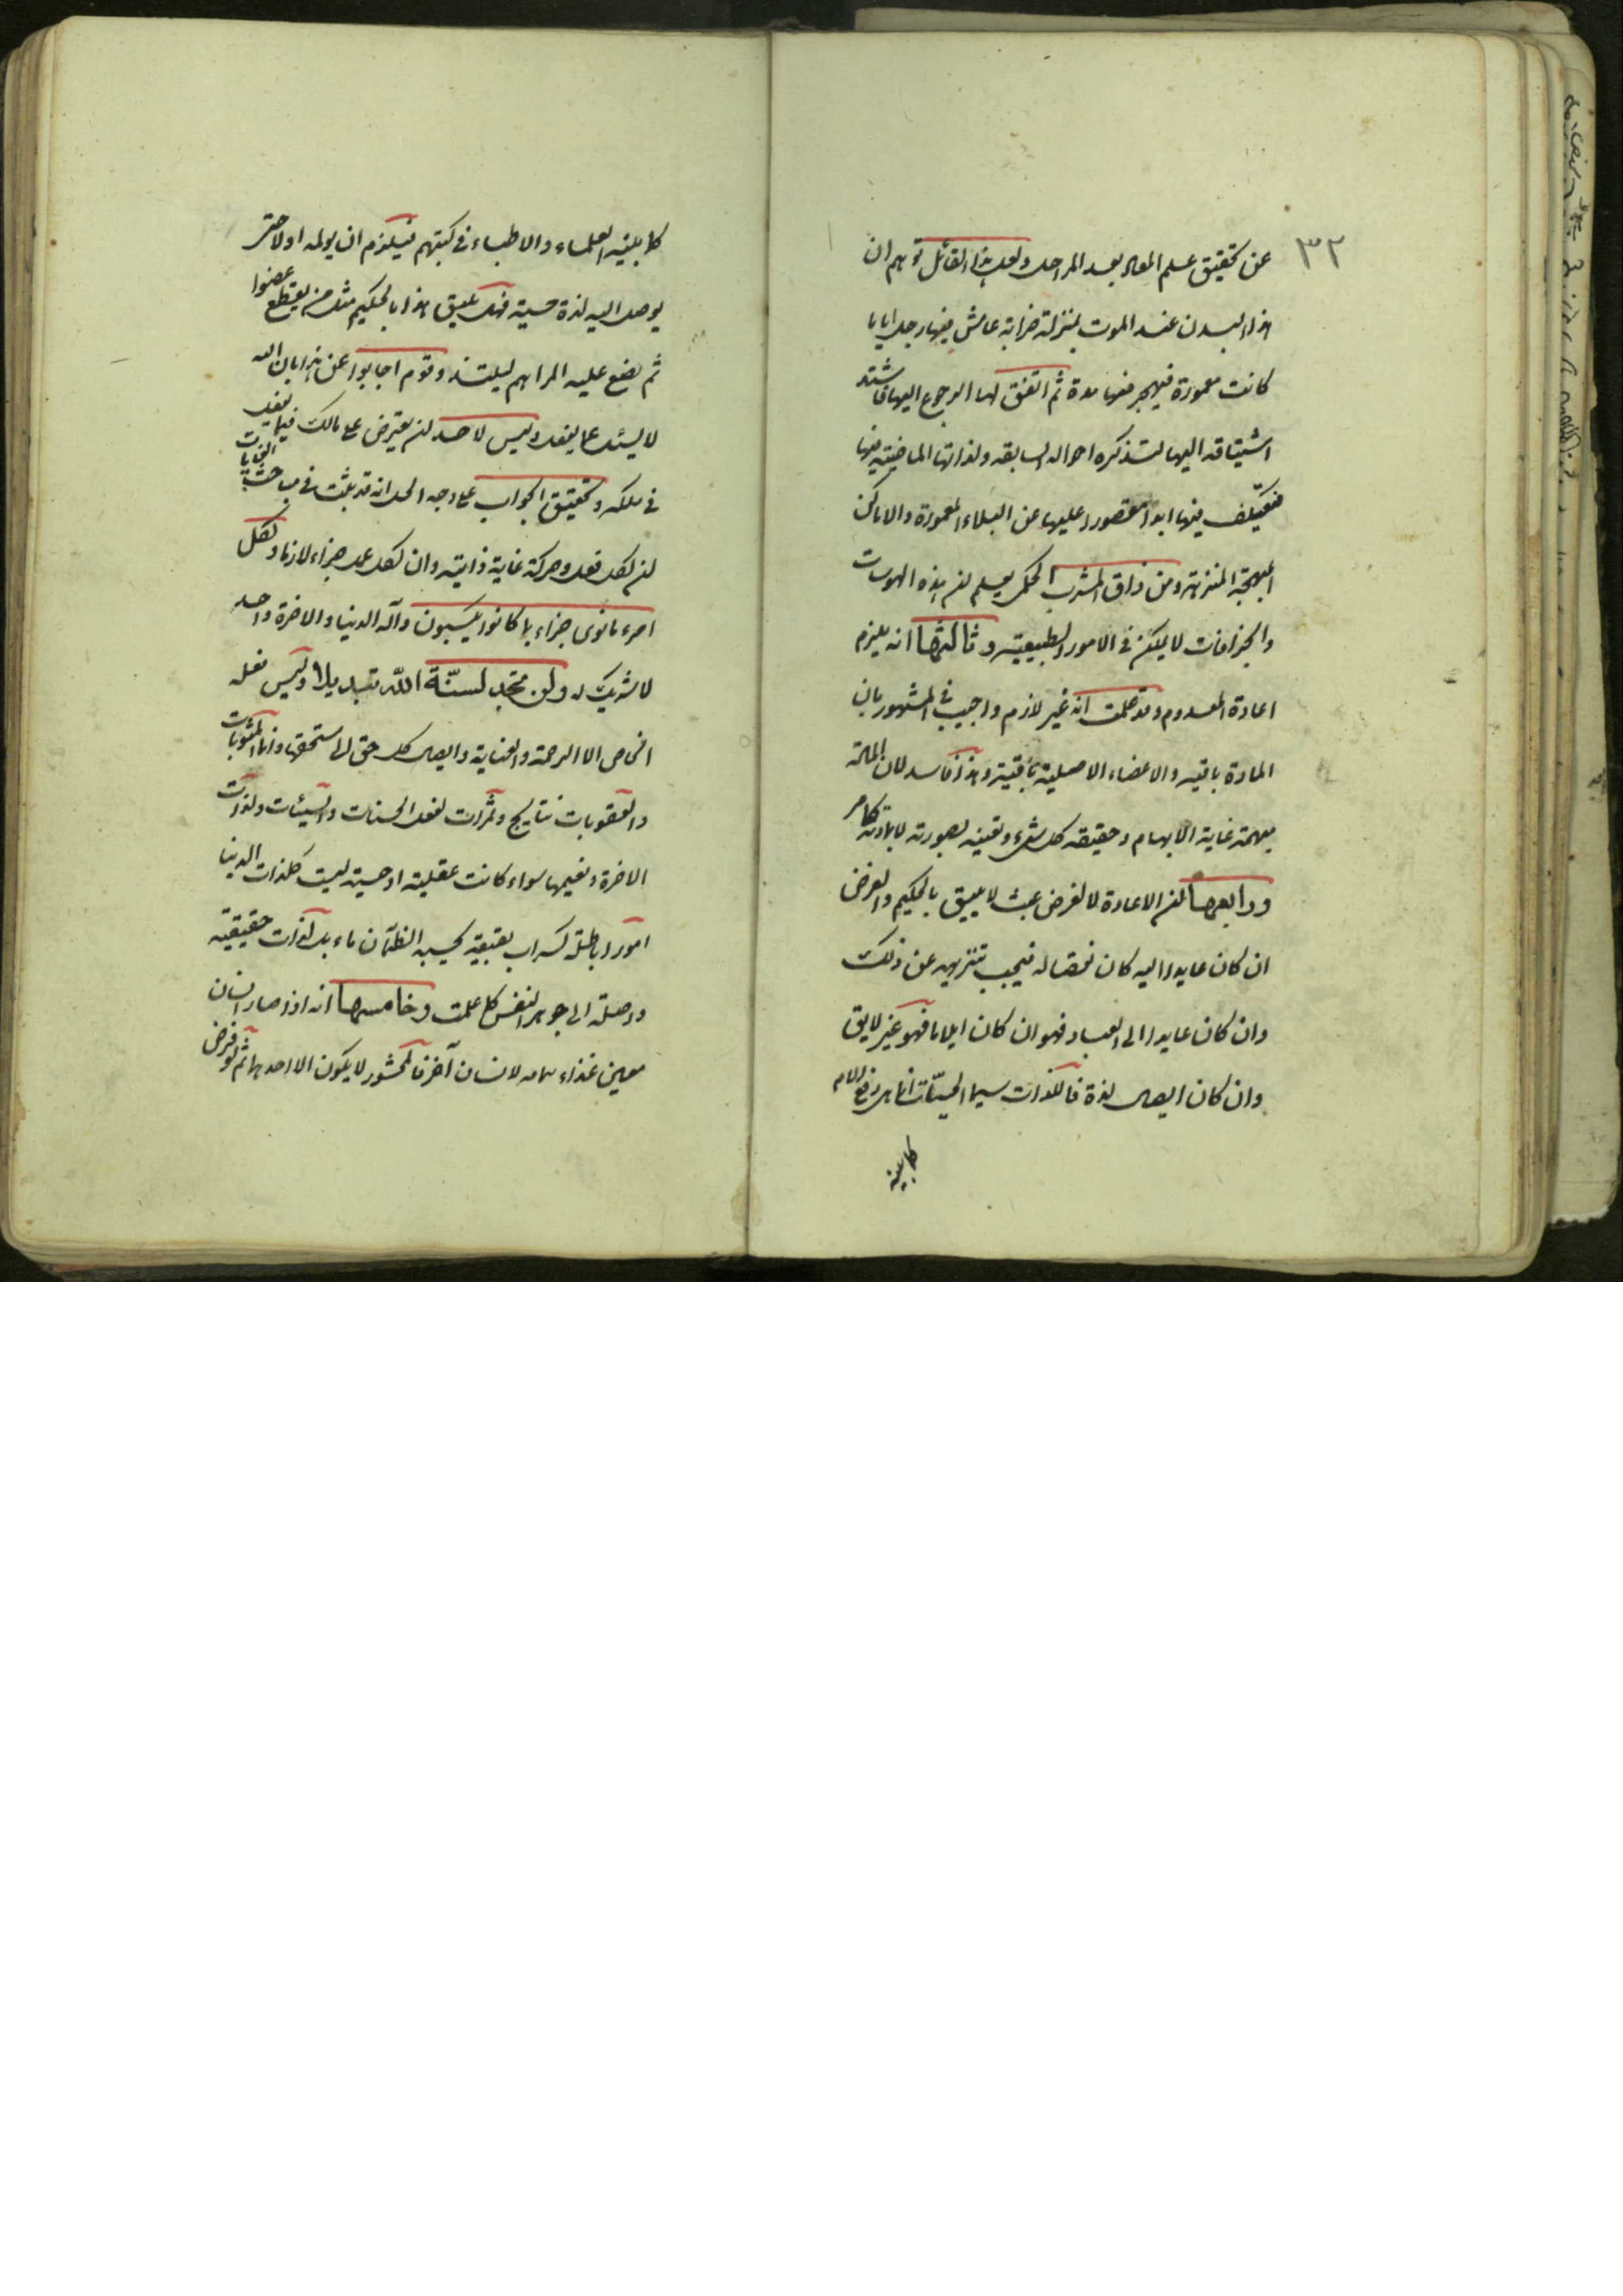 ٣٢
عن تحقيق علم المعاد بعد المراحل ولعل هذا القائل توهم ان
هذا البدن عند الموت بمنزلة خرابة عاش فيها رجل اياما
كانت معمورة فيهجر منها مدة ثم اتفق لها الرجوع اليها فاشتد
اشتياقه اليها لتذكره احواله السابقه ولذاتها الماضيته فيها
فتعتكف فيها ابدا مقصورا عليها عن البلاد المعمورة والاماكن
المبهجة المنزهة ومن ذاق المشرب الحكمى يعلم ان هذه الهوسات
والجزافات لا يمكن فى الامور الطبيعيته وثالثها انه يلزم
اعادة المعدوم وقد علمت انه غير لازم واجيب فى المشهور بان
المادة باقيه والاعضاء الاصلية باقيته وهذا فاسد لان المادة
مبهمة غاية الابهام وحقيقه كل شىء وتعينه بصورته لا بمادته كما مر
ورابعها ان الاعادة لا لغرض عبث لا يليق بالحكيم والغرض
ان كان عايدا اليه كان نقصا له فيجب تنزيهه عن ذلك
وان كان عايدا الى العباد فهو ان كان ايلاما فهو غير لايق
وان كان ايصال لذة فاللذات سيما الحسيّات انما هى دفع الالام
كما بينه
كما بينه العلماء والاطباء فى كتبهم فيلزم ان يولمه اولا حتى
يوصل اليه لذة حسية فهل يليق هذا بالحكيم مثل من يقطع عضوا
ثم يضع عليه المراهم ليلتذ وقوم اجابوا عن هذا بان الله
لا يسئل عما يفعل وليس لاحد ان يعترض على مالك فيما يفعل
فى ملكه وتحقيق الجواب على وجه الحل انه قد ثبت فى مباحث الغايات
ان لكل فعل وحركة غاية ذاتيه وان لكل عمل جزاء لازما ولكل
امرء مانوى جزاء بما كانوا يكسبون واله الدنيا والاخرة واحد
لا شريك له ولن تجد لسنّة اللّه تبديلا وليس فعله
الخاص الا الرحمة والعناية وايصال كل حق الى مستحقه وانما المثوبات
والعقوبات نتايج وثمرات لفعل الحسنات والسيئات ولذات
الاخرة ونعيمها سواء كانت عقلية او حسية ليست كلذات الدنيا
امورا باطلة كسراب بقيعة يحسبه الظمآن ماء بل لذات حقيقيه
واصلة الى جوهر النفس كما علمت وخامسها انه اذا صار انسان
معين غذاء بتمامه لانسان آخر فالمحشور لا يكون الا احدهما ثم لو فرض